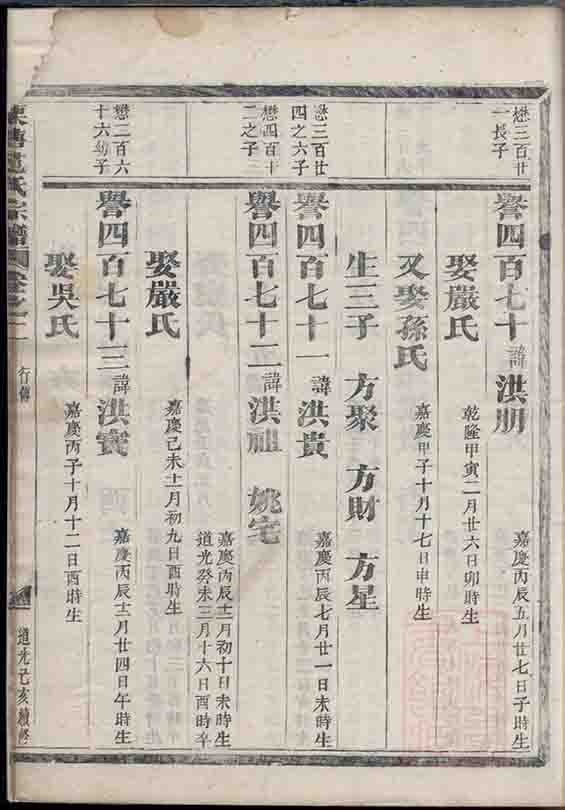 懋三百廿
一長子
譽四百七十 諱洪朋 嘉慶丙辰五月廿七日子時生
娶嚴氏 乾隆甲寅二月廿六日卯時生
又娶孫氏 嘉慶甲子十月十七日申時生
生三子 方聚 方財 方星
懋三百廿
四之六子
譽四百七十一 諱洪貴 嘉慶丙辰七月廿一日未時生
懋四百十
二之子
譽四百七十二 諱洪祖 姚宅 嘉慶丙辰十二月初十日未時生
道光癸未三月十六日酉時卒
娶嚴氏 嘉慶己未十一月初九日酉時生
懋二百六
十六幼子
譽四百七十三 諱洪寶 嘉慶丙辰十二月廿四日午時生
娶吳氏 嘉慶丙子十月十二日酉時生
氏宗譜 卷之二 行傳 道光己亥續修